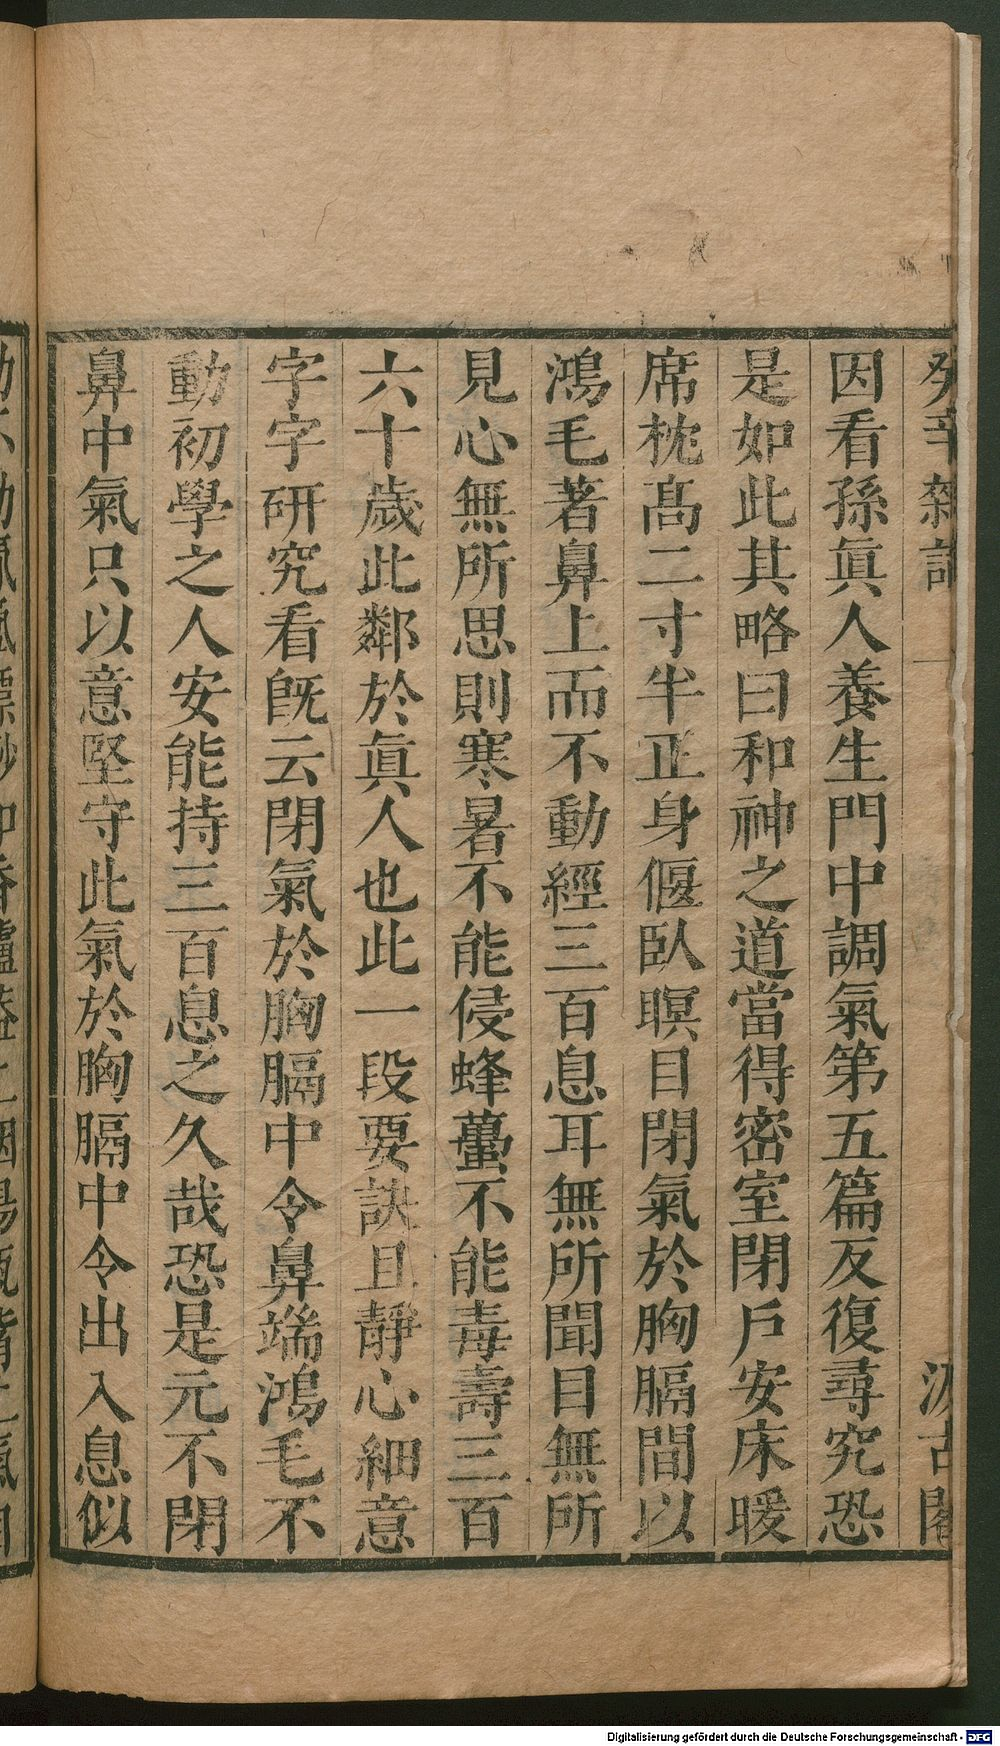 癸辛雜識
汲古閣
因看孫眞人養生門中調氣第五篇反復尋究恐
是如此其略曰和神之道當得密室閉戶安床暖
席枕髙二寸半正身偃臥瞑目閉氣於胸膈間以
鴻毛著鼻上而不動經三百息耳無所聞目無所
見心無所思則寒暑不能侵蜂蠆不能毒壽三百
六十歲此鄰於眞人也此一段要訣且靜心細意
字字研究看旣云閉氣於胸膈中令鼻端鴻毛不
動初學之人安能持三百息之久哉恐是元不閉
鼻中氣只以意堅守此氣於胸膈中令出入息似
Digitalisierung gefördert durch die Deutsche Forschungsgemeinschaft - DFG